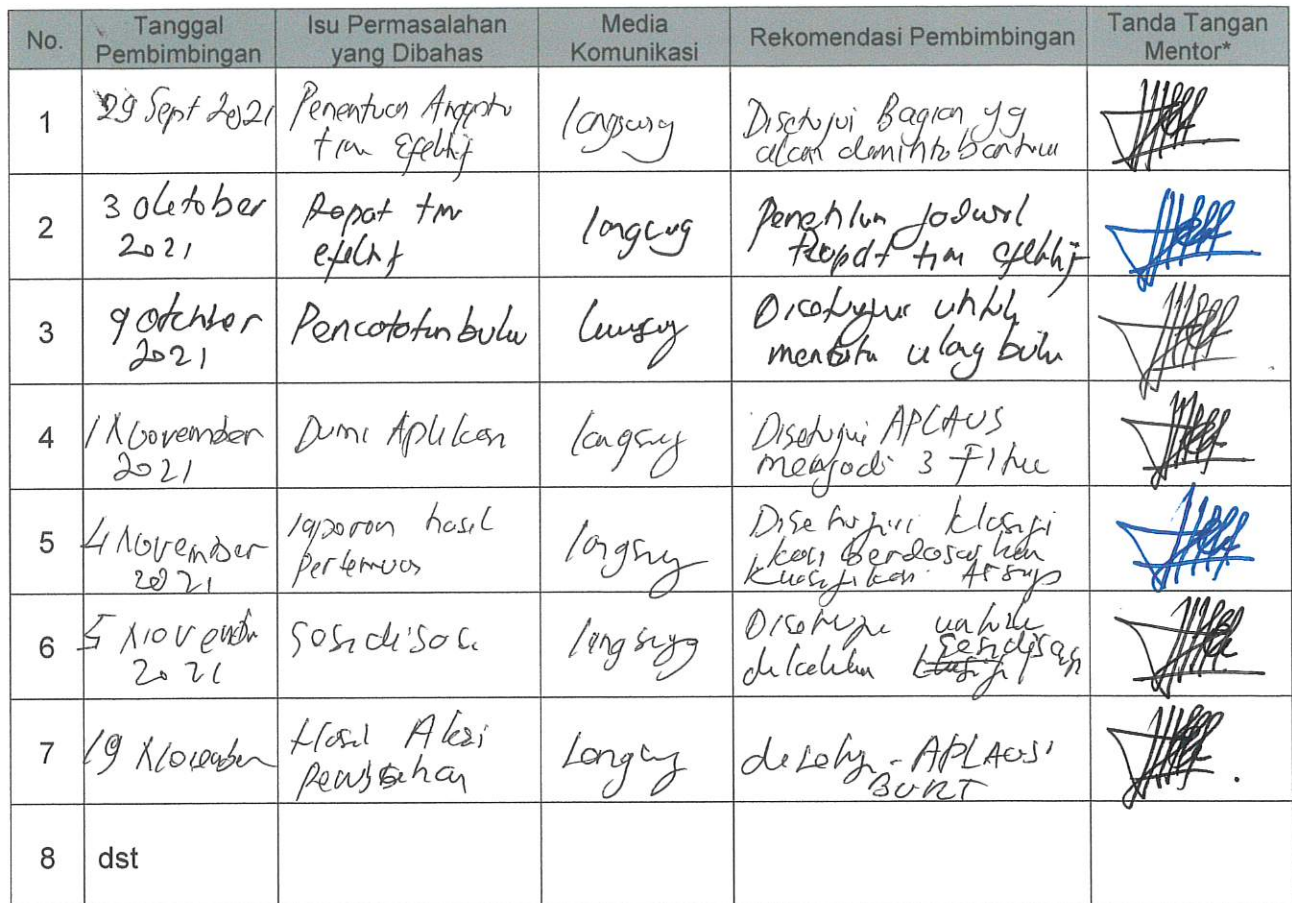 No.
Tanggal
Pembimbingan
Isu Permasalahan
yang Dibahas
Media
Komunikasi
Rekomendasi Pembimbingan
Tanda Tangan
Mentor*
1
29 Sept 2021
Penentuan Anggota
tim Efektif
langsung
Disetujui Bagian yg
akan dimintai bantuan
2
3 Oktober
2021
Rapat tim
efektif
langsung
jadwal
Rapat tim efektif
3
9 Oktober
2021
Pencatatan buku
langsung
Disetujui untuk
ulang buku
4
1 November
2021
Aplikasi
langsung
Disetujui APLAUS
menjadi 3 Fitur
5
4 November
2021
laporan hasil
langsung
Disetujui klasifi
kasi berdasarkan
6
5 November
2021
Sosialisasi
langsung
Disetujui untuk
sosialisasi
7
19 November
Hasil Aksi
Perubahan
Langsung
APLAUS
BURT
8
dst